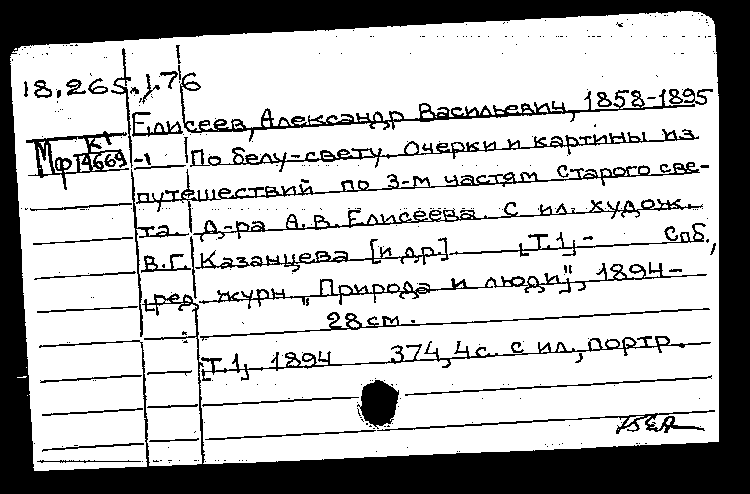 18.265.1.76
Елисеев, Александр Васильевич, 1858-1895
К1
Мф 74669 -1 По белу-свету. Очерки и картины из
путешествий по 3-м частям Старого све-
та. Д-ра А.В. Елисеева. С ил. худож.
В.Г. Казанцева [и др.] [Т.1]- Спб.,
[ред. журн. „Природа и люди"], 1894-
28 см.
[Т.1] 1894 374, 4 с. с ил., портр.